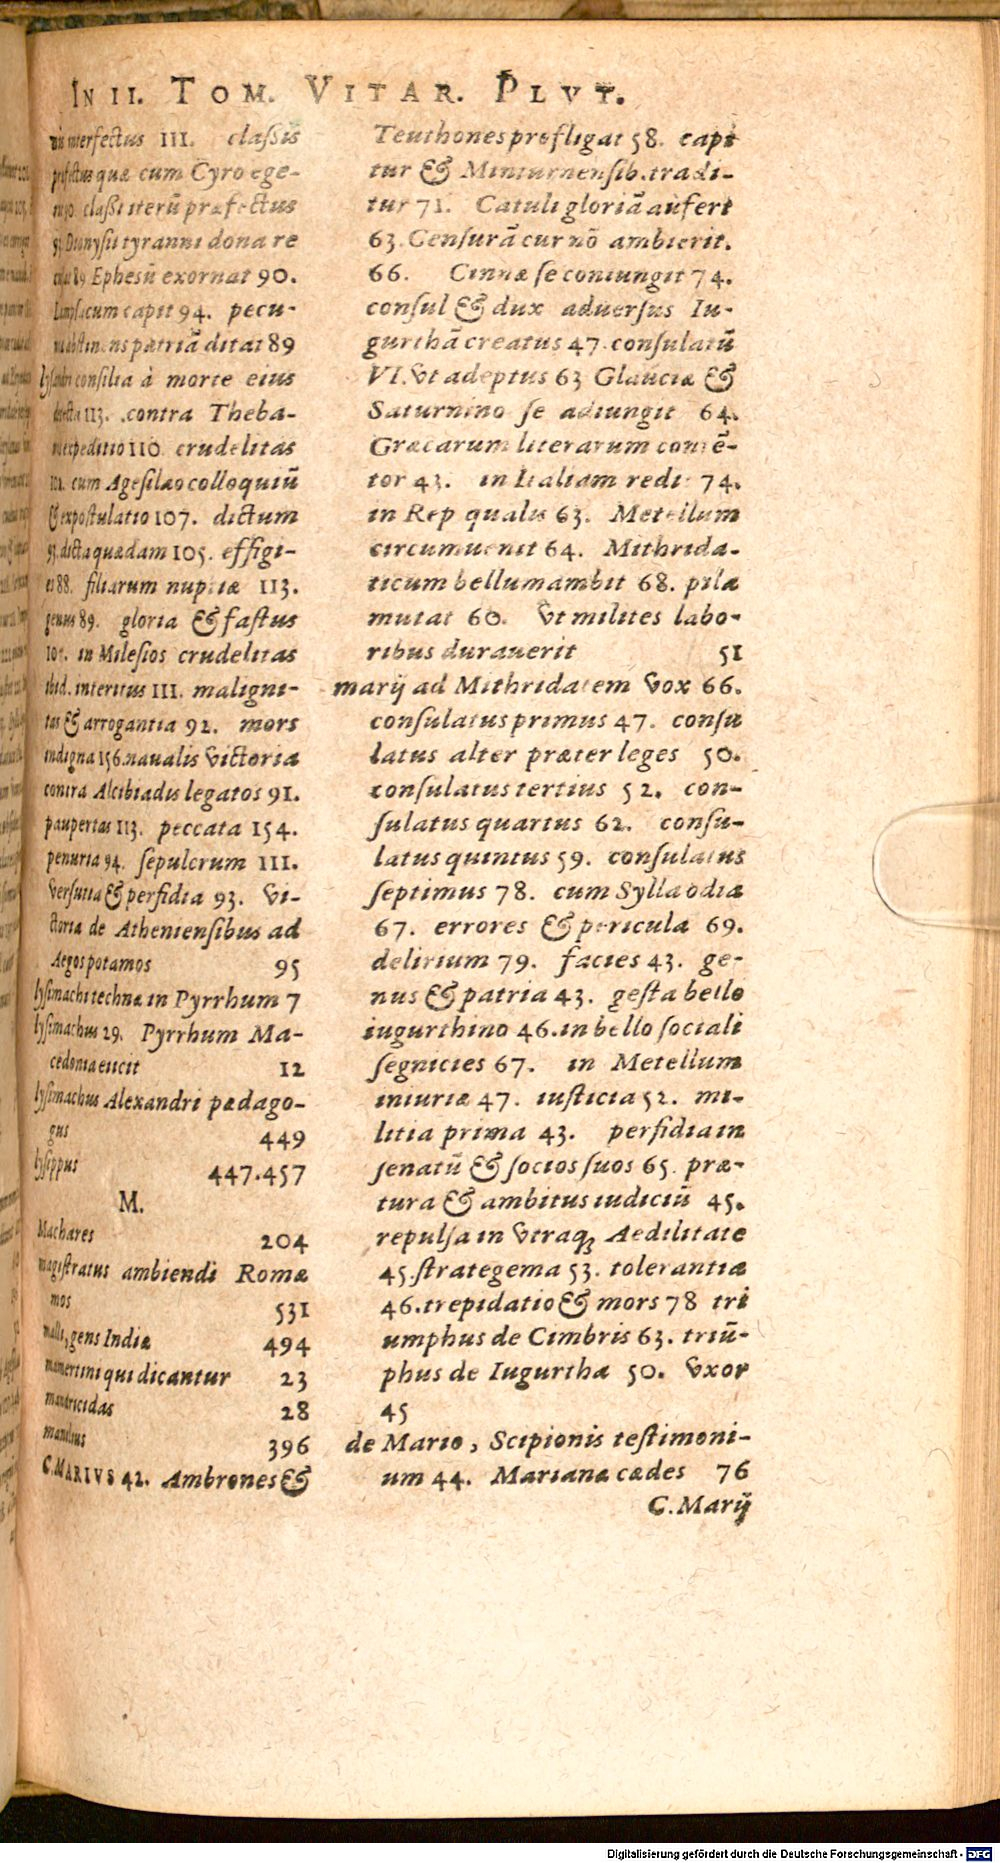 IN II. TOM. VITAR. PLVT.
interfectus III. claſsis
præfectus quæ cum Cyro ege-
claſsi iterũ præfectus
93. Dionyſii tyranni dona re
89 Epheſũ exornat 90.
Lampſacum capit 94. pecu-
abſtinens patriã ditat 89
lyſandri conſilia à morte eius
113. contra Theba-
expeditio 110 crudelitas
cum Ageſilao colloquiũ
& expoſtulatio 107. dictum
93. dicta quædam 105. effigi-
es 88. filiarum nuptiæ 113.
genus 89. gloria & faſtus
in Mileſios crudelitas
ibid. interitus III. maligni-
tas & arrogantia 92. mors
indigna 156. naualis victoria
contra Alcibiadis legatos 91.
paupertas 113. peccata 154.
penuria 94. ſepulcrum III.
verſutia & perfidia 93. vi-
ctoria de Athenienſibus ad
Aegospotamos 95
lyſimachi technæ in Pyrrhum 7
lyſimachus 29. Pyrrhum Ma-
cedonia eiicit 12
lyſimachus Alexandri pædago-
gus 449
lyſippus 447.457
M.
Machares 204
magiſtratus ambiendi Romæ
mos 531
malli, gens Indiæ 494
mamertini qui dicantur 23
mandricidas 28
manlius 396
C. MARIVS 42. Ambrones &
Teuthones profligat 58. capi
tur & Minturnenſib. tradi-
tur 71. Catuli gloriã aufert
63. Cenſurã cur nõ ambierit.
66. Cinnæ ſe coniungit 74.
conſul & dux aduerſus Iu-
gurthã creatus 47. conſulatũ
VI. vt adeptus 63 Glauciæ &
Saturnino ſe adiungit 64.
Græcarum literarum contẽ-
tor 43. in Italiam redit 74.
in Rep qualis 63. Metellum
circumuenit 64. Mithrida-
ticum bellum ambit 68. pila
mutat 60. vt milites labo-
ribus durauerit 51
marij ad Mithridatem vox 66.
conſulatus primus 47. conſu
latus alter præter leges 50.
conſulatus tertius 52. con-
ſulatus quartus 62. conſu-
latus quintus 59. conſulatus
ſeptimus 78. cum Sylla odia
67. errores & pericula 69.
delirium 79. facies 43. ge-
nus & patria 43. geſta bello
iugurthino 46. in bello ſociali
ſegnicies 67. in Metellum
iniuriæ 47. iuſticia 52. mi-
litia prima 43. perfidia in
ſenatũ & ſocios ſuos 65. præ-
tura & ambitus iudiciũ 45.
repulſa in vtraq; Aedilitate
45. ſtrategema 53. tolerantia
46. trepidatio & mors 78 tri
umphus de Cimbris 63. triũ-
phus de Iugurtha 50. vxor
45
de Mario, Scipionis teſtimoni-
um 44. Mariana cædes 76
C. Marij
Digitalisierung gefördert durch die Deutsche Forschungsgemeinschaft - DFG